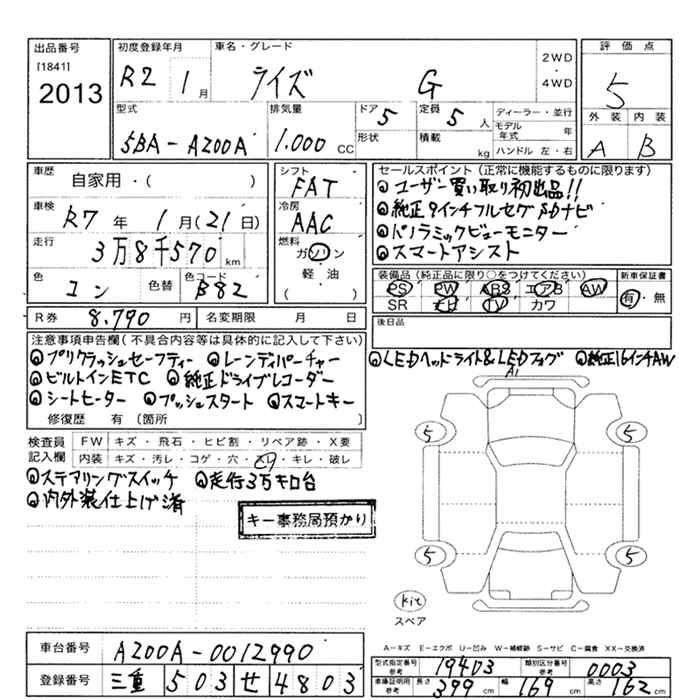 出品番号 初度登録年月 車名・グレード 2WD・4WD 評価点
[1841] R2 1月 ライズ G 5
2013
型式 排気量 ドア 5 定員 5人 ディーラー・並行 外装 内装
5BA-A200A 1.000CC 形状 積載 kg モデル年式 年 A B
ハンドル 左・右
車歴 シフト セールスポイント(正常に機能するものに限ります)
自家用・( ) FAT ユーザー買い取り初出品!!
車検 R7年 1月(21日) 冷房 AAC 純正9インチフルセグSDナビ
走行 3万8千570km 燃料 ガソリン パノラミックビューモニター
軽油 スマートアシスト
( )
色 コン 色替 色コード B82 装備品(純正品に限り○をつけてください) 新車保証書
PS PW ABS エアB AW 有・無
SR ナビ TV カワ
R券 8.790円 名変期限 月 日 後日品
注意事項申告欄(不具合内容等は具体的に記入して下さい)
プリクラッシュセーフティー レーンディパーチャー LEDヘッドライト&LEDフォグ 純正16インチAW
ビルトインETC 純正ドライブレコーダー A1
シートヒーター プッシュスタート スマートキー
修復歴 有 〔箇所 〕
検査員記入欄 FW キズ・飛石・ヒビ割・リペア跡・X要
内装 キズ・汚レ・コゲ・穴・スレ・キレ・破レ
ステアリングスイッチ 走行3万キロ台
内外装仕上げ済
キー事務局預かり
5 5
5 5
kit
スペア
A-キズ E-エクボ U-凹み W-補修跡 S-サビ C-腐食 XX-交換済
車台番号 A200A-0012990 型式指定番号 参考 19403 類別区分番号 参考 0003
登録番号 三重 503 せ 4803 車庫証明用 参考 長さ 399cm 幅 169cm 高さ 162cm